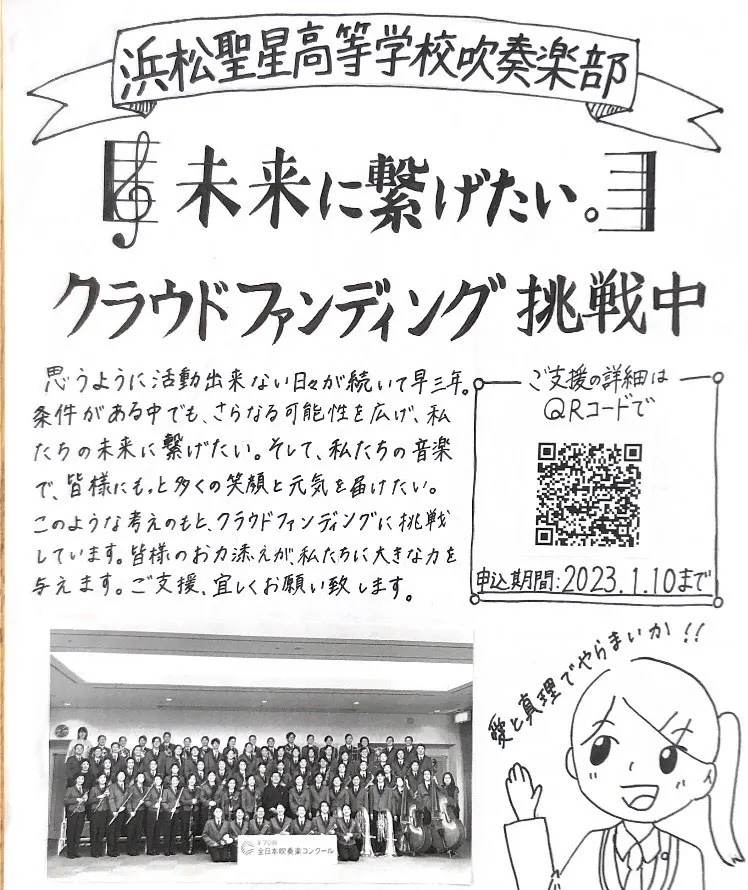 浜松聖星高等学校吹奏楽部
未来に繋げたい。
クラウドファンディング挑戦中
思うように活動出来ない日々が続いて早三年。
条件がある中でも、さらなる可能性を広げ、私
たちの未来に繋げたい。そして、私たちの音楽
で、皆様にもっと多くの笑顔と元気を届けたい。
このような考えのもと、クラウドファンディングに挑戦
しています。皆様のお力添えが、私たちに大きな力を
与えます。ご支援、宜しくお願い致します。
ご支援の詳細は
QRコードで
申込期間:2023.1.10まで
愛と真理でやらまいか!!
第70回
全日本吹奏楽コンクール